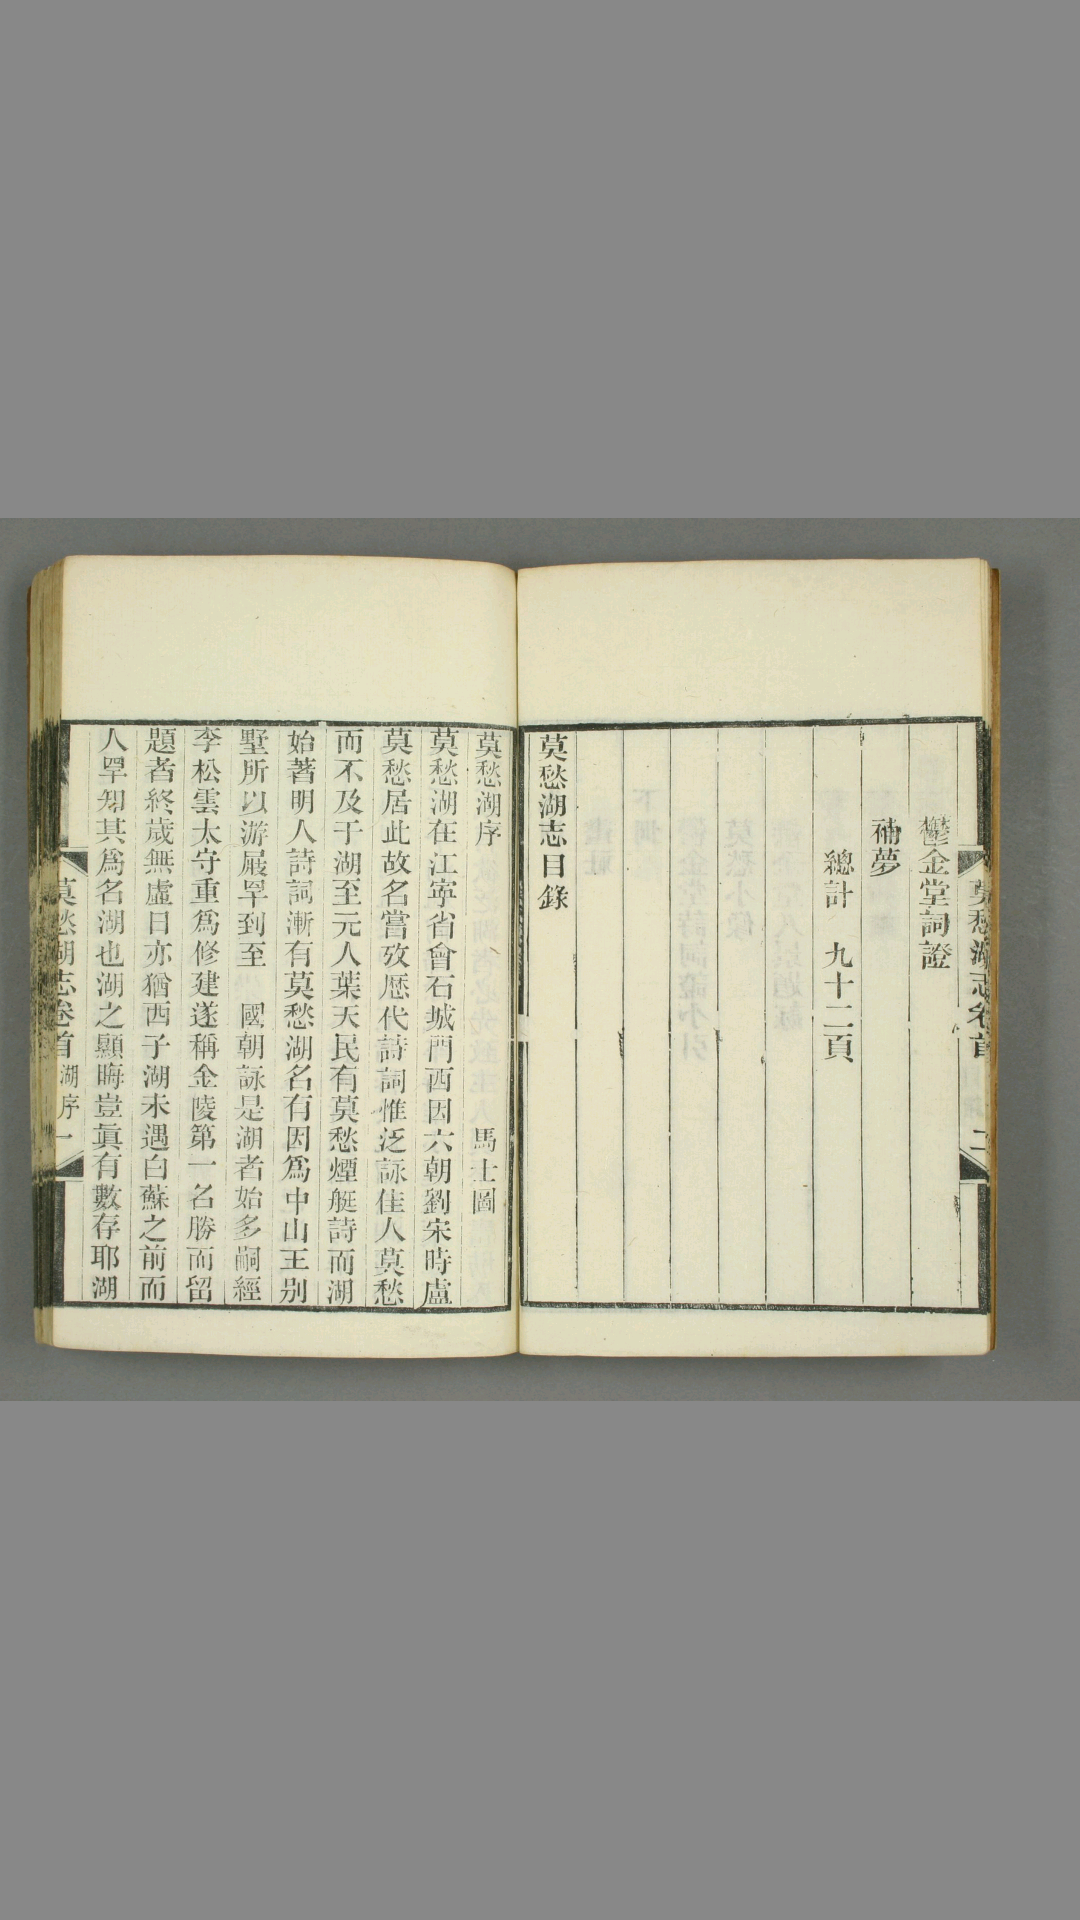 莫愁湖志卷首
二
鬱金堂詞證
補夢
總計　九十二頁
莫愁湖志目錄
莫愁湖序　馬士圖
莫愁湖在江寧省會石城門西因六朝劉宋時盧
莫愁居此故名嘗攷歷代詩詞惟泛詠佳人莫愁
而不及于湖至元人葉天民有莫愁煙艇詩而湖
始著明人詩詞漸有莫愁湖名有因爲中山王别
墅所以游屐罕到至　國朝詠是湖者始多嗣經
李松雲太守重爲修建遂稱金陵第一名勝而留
題者終歲無虛日亦猶西子湖未遇白蘇之前而
人罕知其爲名湖也湖之顯晦豈眞有數存耶湖
莫愁湖志卷首　湖序　一